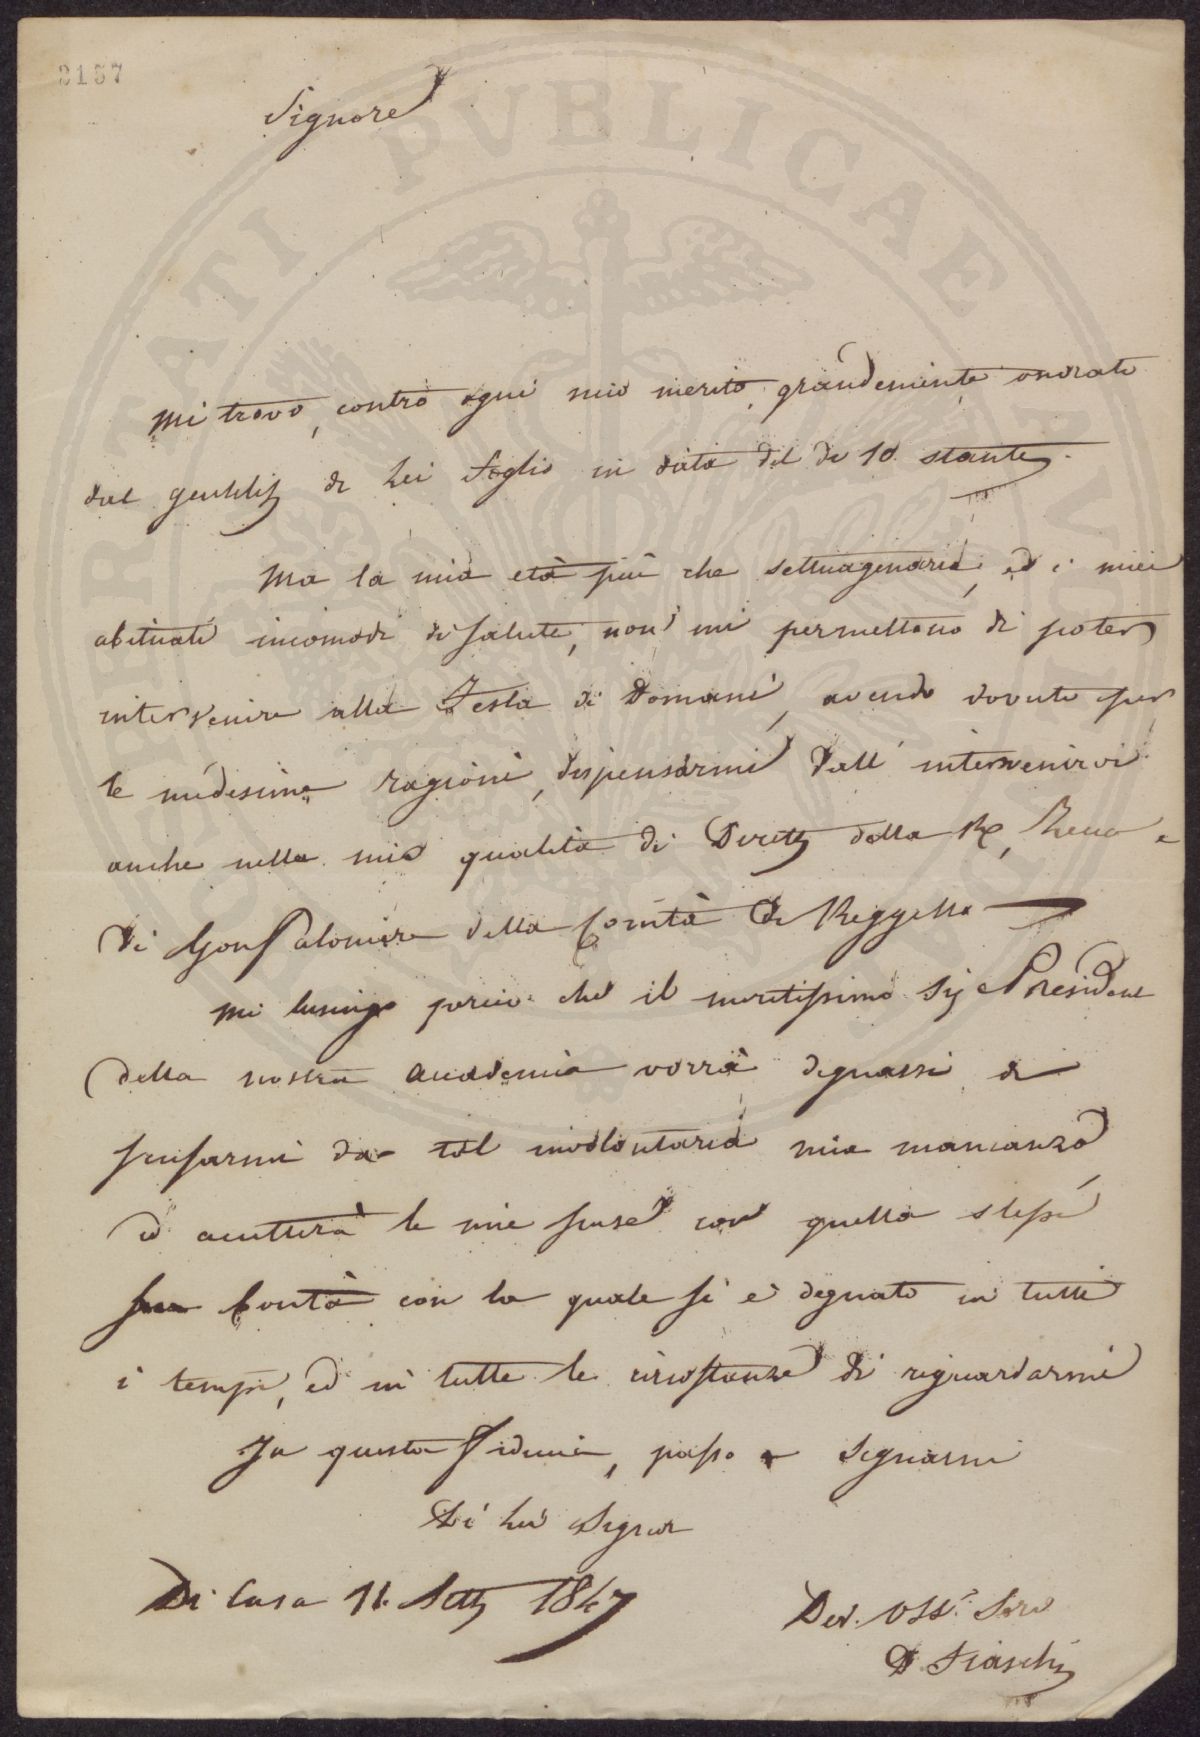 2157
Signore
Mi trovo, contro ogni mio merito, grandemente onorato
dal gentilis di Lei foglio in data del dì 10 stante.
Ma la mia età più che settuagenaria, ed i miei
abituati incomodi di salute, non mi permettono di poter
intervenire alla Festa di Domani, avendo dovuto per
le medesime ragioni, dispensarmi dall' intervenirvi
anche nella mia qualità di Dirett della R. e
di Gonfaloniere della Comtà di Reggello
Mi lusingo perciò che il meritissimo Sig Presidente
della nostra Accademia vorrà degnarsi di
scusarmi da tal involontaria mia mancanza
ed accetterà le mie scuse con quella stessa
sua bontà con la quale si è degnato in tutti
i tempi, ed in tutte le circostanze di riguardarmi
In questa fiducia, passo a segnarmi
Di Lei Signor
Di Casa 11. Sett 1847
Dev. Oss. Serv
D Fiaschi
PERTATI PVBLICAE